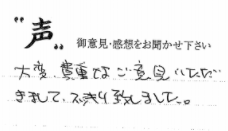 "声" 御意見・感想をお聞かせ下さい
大変貴重なご意見いただ
きまして、スッキリ致しました。